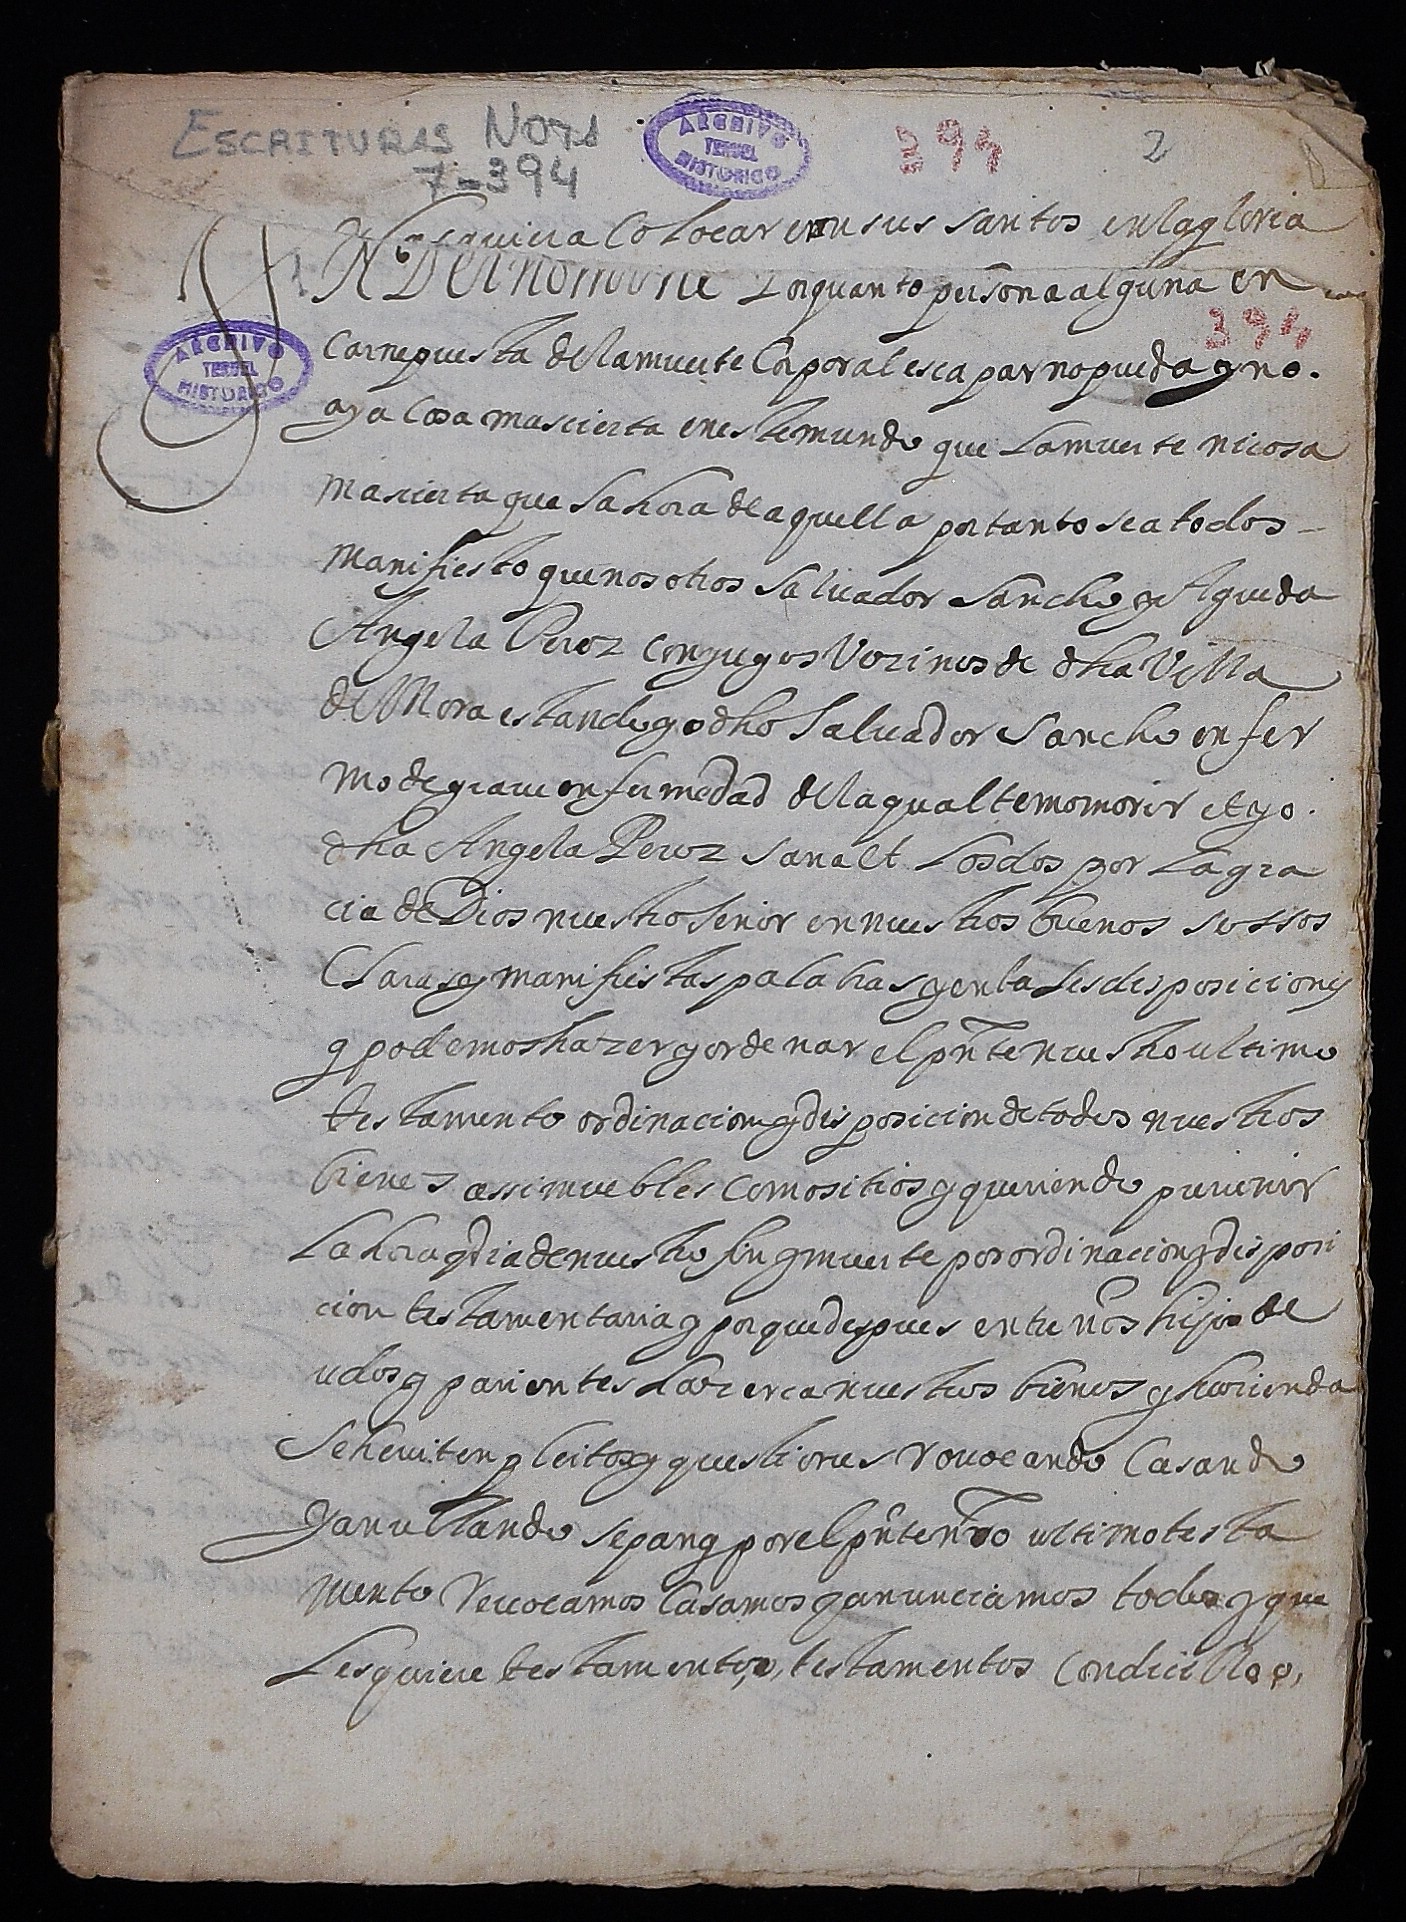 ESCRITURAS NOTS
7-394
ARCHIVO
TERUEL
HISTORICO
394
2
quiera Colocar con sus santos en la gloria
Dei nomine Por quanto persona alguna en
394
ARCHIVO
TERUEL
HISTORICO
carne puesta de la muerte Corporal escapar no pueda y no
aya Cosa mas cierta en este mundo que La muerte ni cosa
mas cierta que La hora de aquella por tanto sea a todos
manifiesto que nosotros Saluador Sancho y Agueda
Angela Perez conyuges Vezinos de dha Villa
de Mora estando yo dho Saluador Sancho enfer
mo de graue enfermedad de la qual temo morir et yo
dha Angela Perez sana et Los dos por La gra
cia de Dios nuestro Senor en nuestros buenos sessos
Claras y manifiestas palabras y en tales disposiciones
q podemos hazer y ordenar el pnte nuestro ultimo
testamento ordinacion y disposicion de todos nuestros
bienes assi muebles como sitios y queriendo preuenir
La hora y dia de nuestro fin y muerte por ordinacion y disposi
cion testamentaria y porque despues entre nros hijos de
udos y parientes hazerca nuestros bienes y hazienda
se heuiten pleitos y questiones Reuocando Casando
y anullando sepan q por el pnte nro ultimo testa
mento Reuocamos Casamos y anunciamos todos y qua
Lesquiere testamento, o, testamentos Condicillo, o,